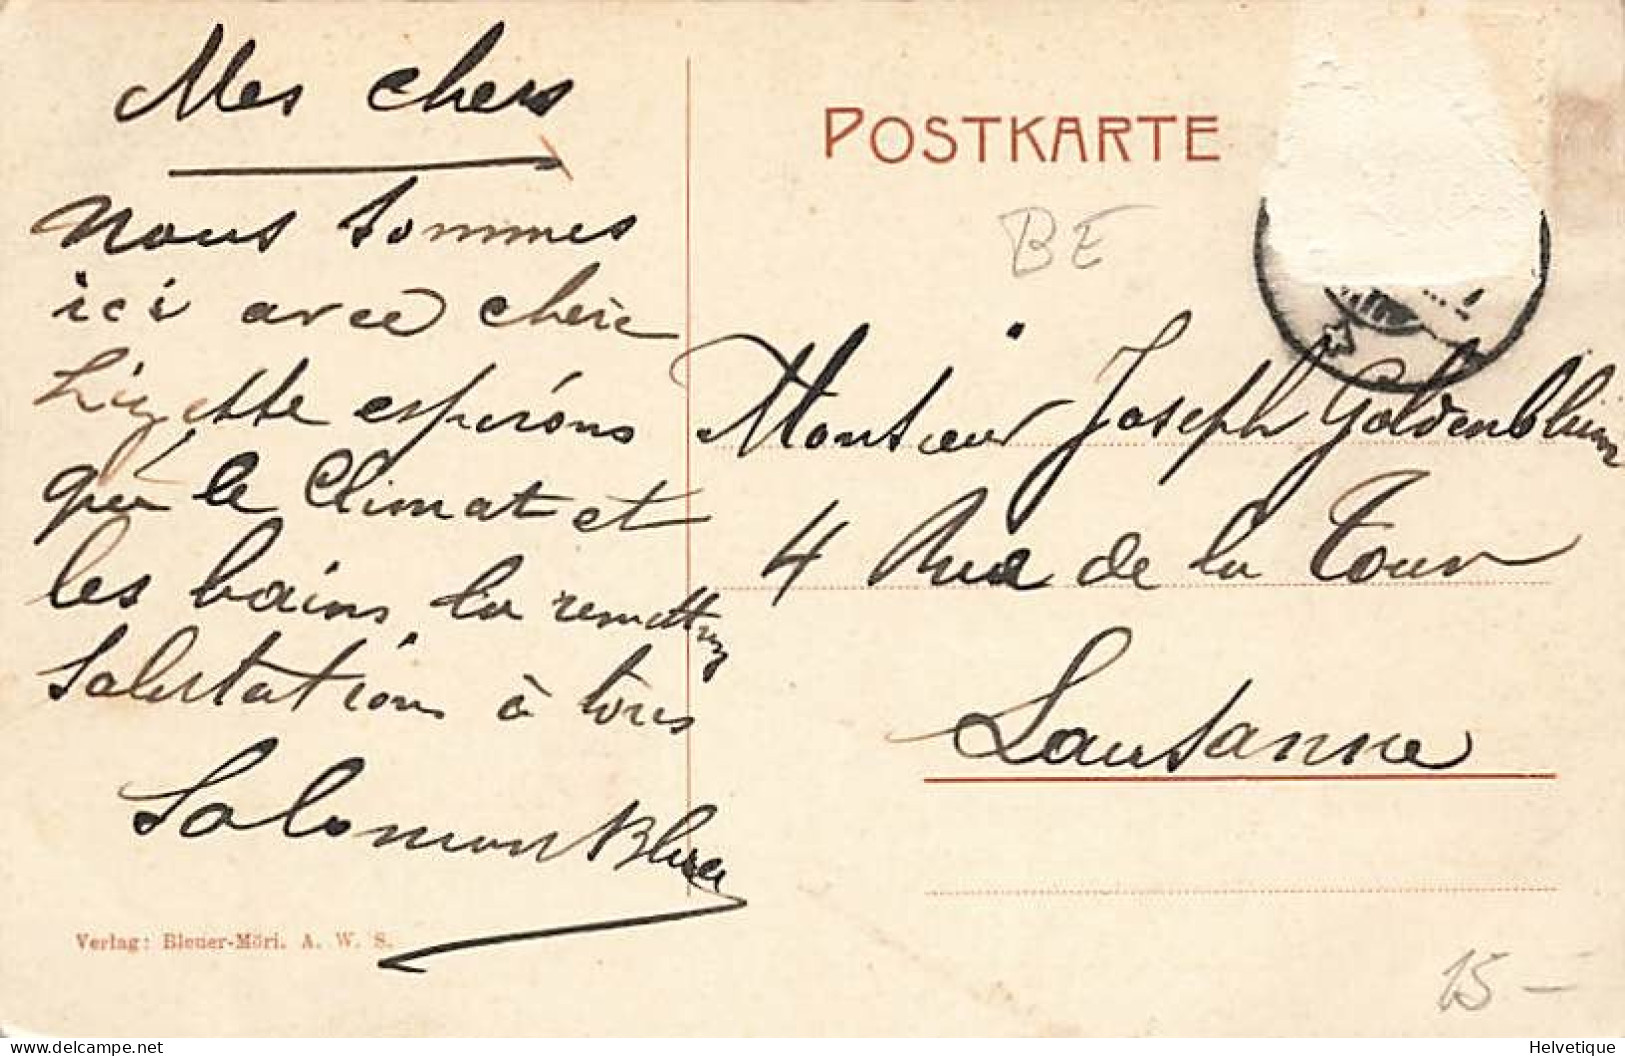 Mes chers
Nous sommes
ici avec chère
Lizette espérons
que le climat et
les bains la remettrez
Salutations à tous
Salomon Blum
Verlag: Bleuer-Möri. A. W. S.
POSTKARTE
BE
Monsieur Joseph Goldenblum
4 Rue de la Tour
Lausanne
15 –
delcampe.net
Helvetique